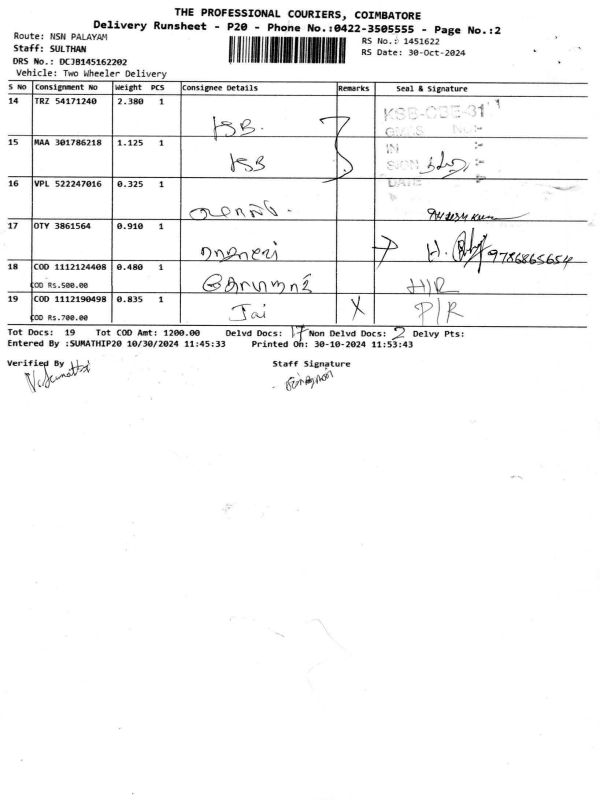 THE PROFESSIONAL COURIERS, COIMBATORE
Delivery Runsheet - P20 - Phone No.:0422-3505555 - Page No.:2
Route: NSN PALAYAM
RS No.: 1451622
Staff: SULTHAN
RS Date: 30-Oct-2024
DRS No.: DCJB145162202
Vehicle: Two Wheeler Delivery
S No Consignment No Weight PCS Consignee Details Remarks Seal & Signature
14 TRZ 54171240 2.380 1 KSB. KSB-CBE-31
15 MAA 301786218 1.125 1 KSB IN
SIGN
DATE
16 VPL 522247016 0.325 1
17 OTY 3861564 0.910 1 H. 9786865654
18 COD 1112124408 0.480 1
COD Rs.500.00
19 COD 1112190498 0.835 1 Jai X P/R
COD Rs.700.00
Tot Docs: 19 Tot COD Amt: 1200.00 Delvd Docs: 17 Non Delvd Docs: 2 Delvy Pts:
Entered By :SUMATHIP20 10/30/2024 11:45:33 Printed On: 30-10-2024 11:53:43
Verified By Staff Signature